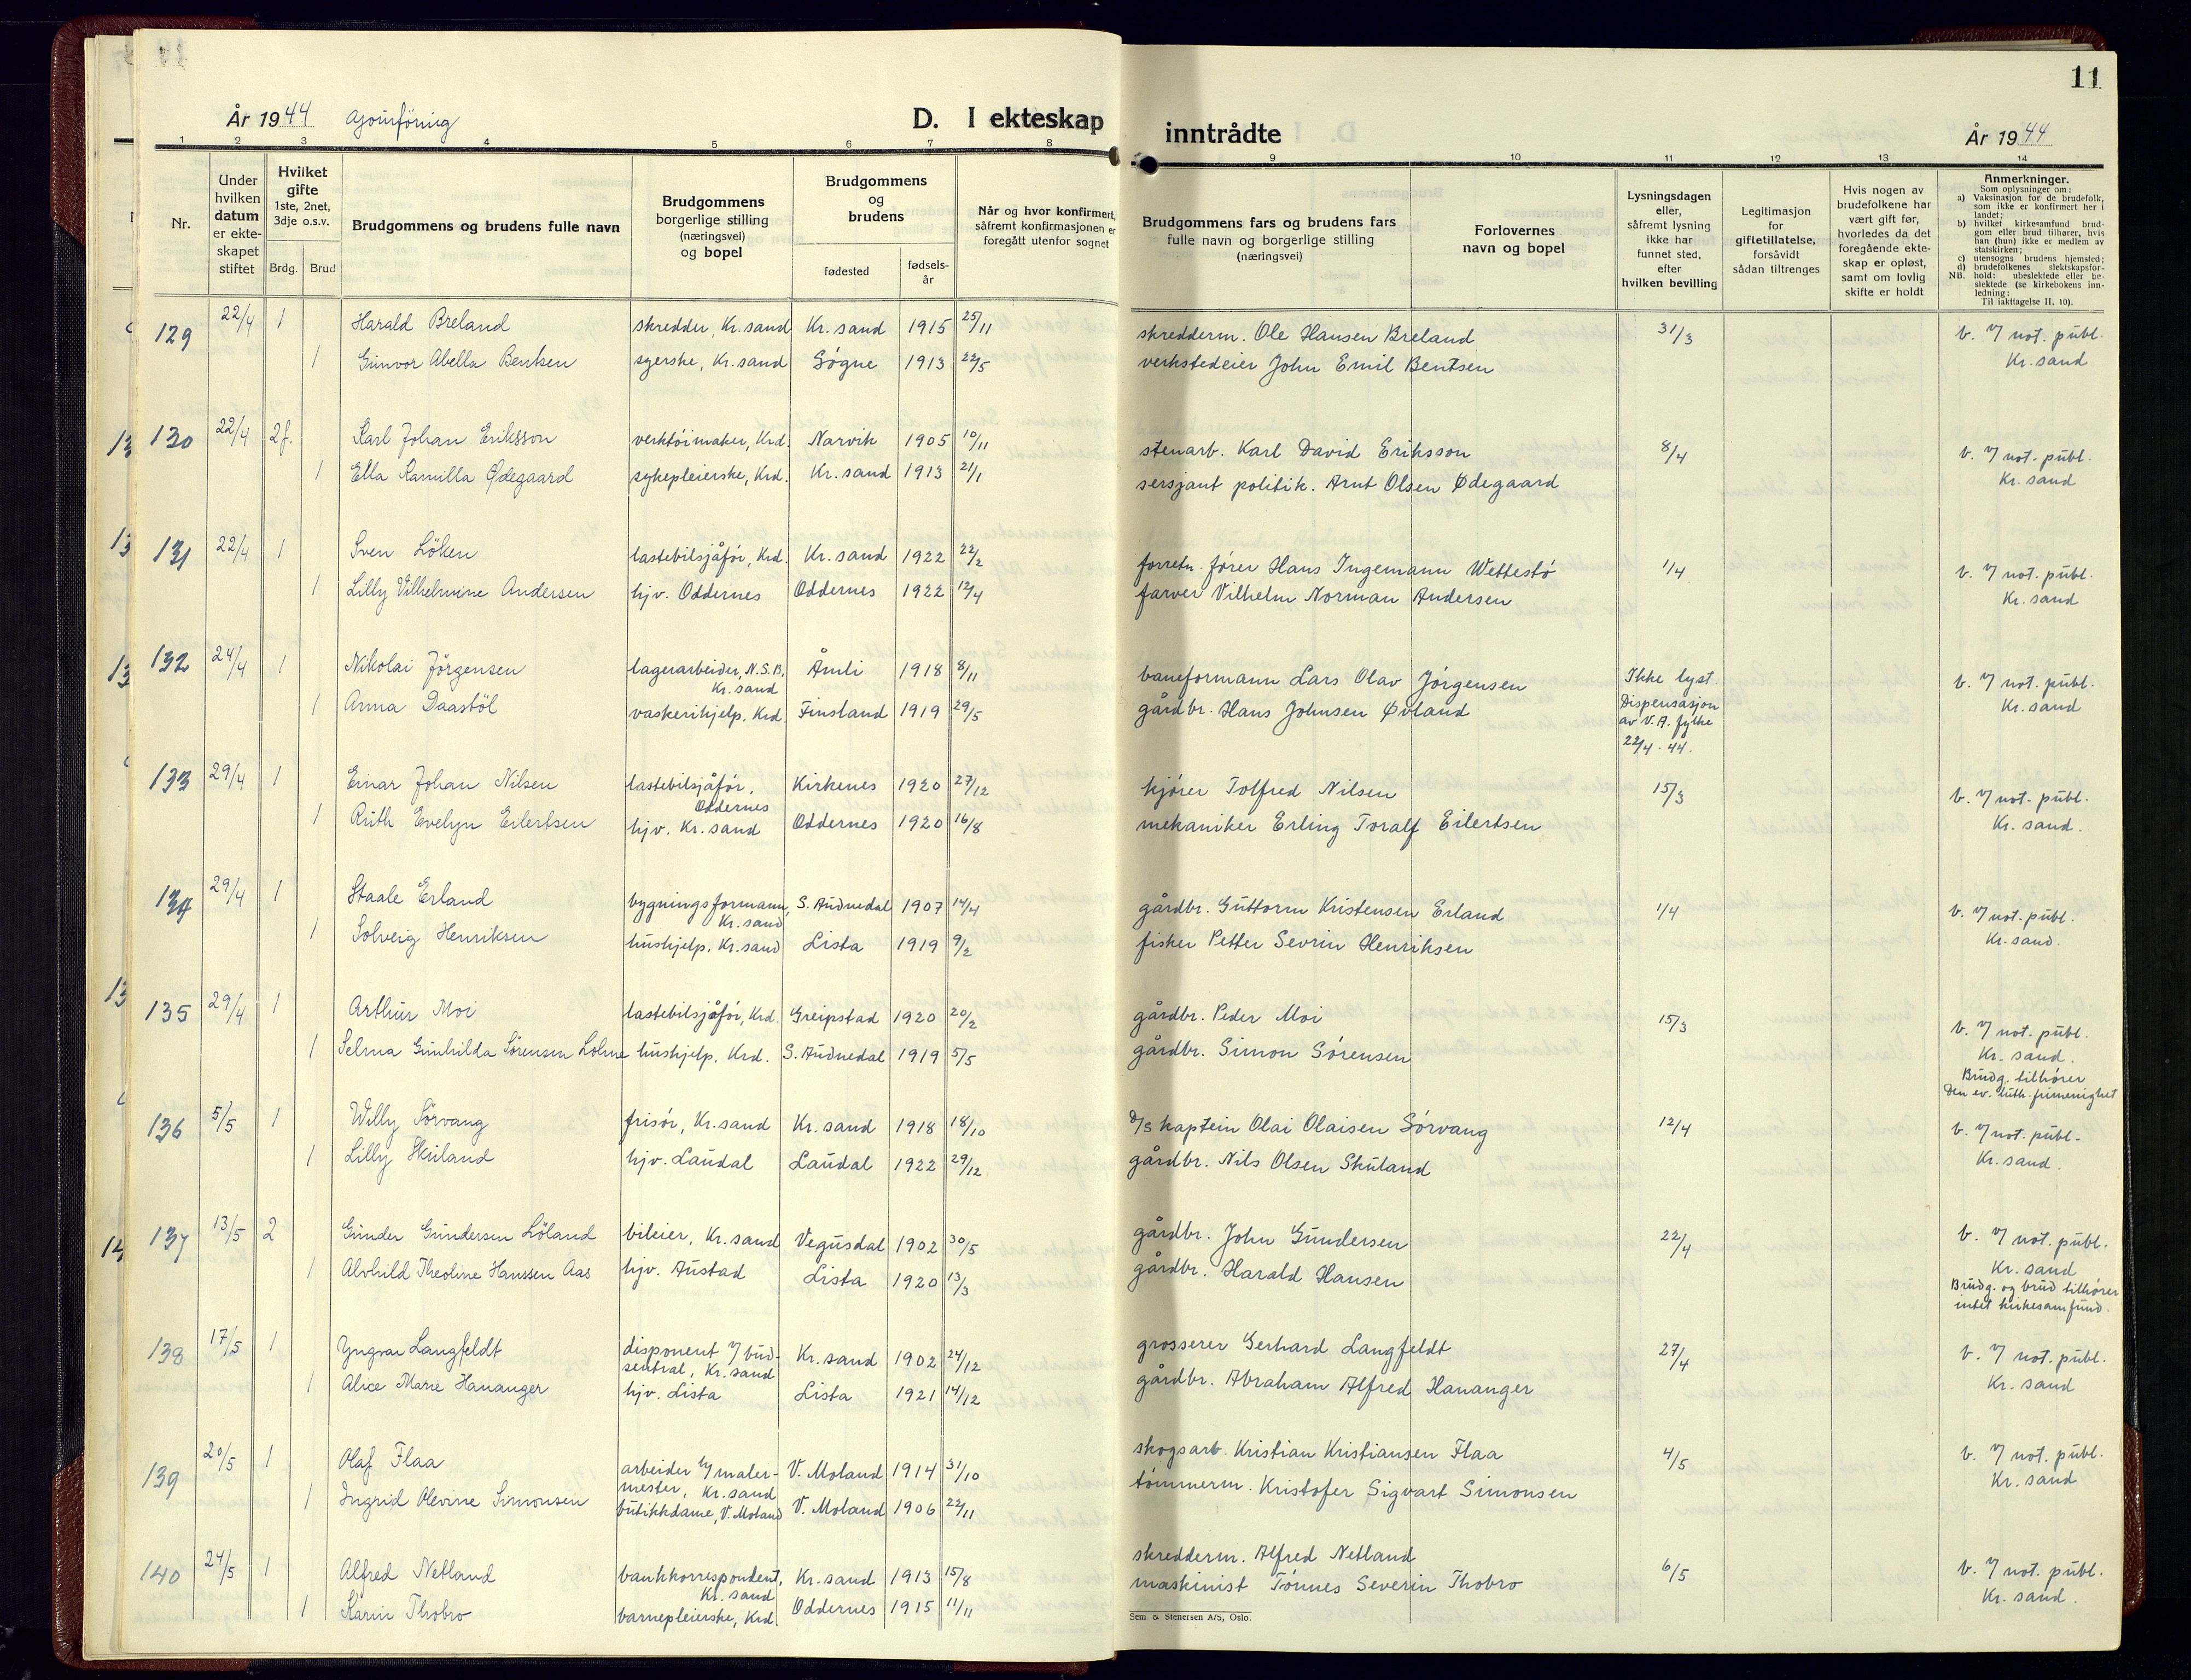 År 1944
D. I ekteskap
inntrådte
År 1944
11
1 2 3 4 5 6 7 8 9 10 11 12 13 14
Nr.
Under hvilken datum er ekte-skapet stiftet
Hvilket gifte 1ste, 2net, 3dje o.s.v.
Brdg. Brud
Brudgommens og brudens fulle navn
Brudgommens borgerlige stilling (næringsvei) og bopel
Brudgommens og brudens
fødested
fødsels-år
Når og hvor konfirmert, såfremt konfirmasjonen er foregått utenfor sognet
Brudgommens fars og brudens fars fulle navn og borgerlige stilling (næringsvei)
Forlovernes navn og bopel
Lysningsdagen eller, såfremt lysning ikke har funnet sted, efter hvilken bevilling
Legitimasjon for giftetillatelse, forsåvidt sådan tiltrenges
Hvis nogen av brudefolkene har vært gift før, hvorledes da det foregående ekte-skap er opløst, samt om lovlig skifte er holdt
Anmerkninger.
Som oplysninger om:
a) Vaksinasjon for de brudefolk, som ikke er konfirmert her i landet;
b) hvilket kirkesamfund brud-gom eller brud tilhører, hvis han (hun) ikke er medlem av statskirken;
c) utensogns brudens hjemsted;
d) brudefolkenes slektskapsfor-hold: ubeslektede eller be-slektede (se kirkebokens inn-ledning;
NB. Til iakttagelse II. 10).
129 22/4 1 Harald Breland skredder, Kr.sand Kr.sand 1915 25/11 skredderm. Ole Hansen Breland 31/3 b. v/ not. publ. Kr.sand
1 Gunvor Abella Bentsen syerske, Kr.sand Søgne 1913 22/5 verkstedeier John Emil Bentsen
130 22/4 2f. Karl Johan Eriksson verktøimaker, Krd. Narvik 1905 10/11 stenarb. Karl David Eriksson 8/4 b. v/ not. publ. Kr.sand
1 Ella Kamilla Ødegaard sykepleierske, Krd. Kr.sand 1913 21/1 sersjant politik. Arnt Olsen Ødegaard
131 22/4 1 Sven Løken lastebilsjåfør, Krd. Kr.sand 1922 22/2 forretn. fører Hans Ingemann Wettestø 1/4 b. v/ not. publ. Kr.sand
1 Lilly Vilhelmine Andersen hjv. Oddernes Oddernes 1922 12/4 farver Vilhelm Norman Andersen
132 24/4 1 Nikolai Jörgensen lagerarbeider, N.S.B. Kr.sand Åmli 1918 8/11 baneformann Lars Olav Jørgensen Ikke lyst. Dispensasjon av V.A. fylke 22/4.44. b. v/ not. publ. Kr.sand
1 Anna Daastöl vaskerihjelp, Krd. Finsland 1919 29/5 gårdbr. Hans Johnsen Øvland
133 29/4 1 Einar Johan Nilsen lastebilsjåfør, Oddernes Kirkenes 1920 27/12 kjører Tolfred Nilsen 15/3 b. v/ not. publ. Kr.sand.
1 Ruth Evelyn Eilertsen hjv. Kr.sand Oddernes 1920 16/8 mekaniker Erling Toralf Eilertsen
134 29/4 1 Staale Erland bygningsformann, Kr.sand S. Audnedal 1907 14/4 gårdbr. Guttorm Kristensen Erland 1/4 b. v/ not. publ. Kr.sand.
1 Solveig Henriksen hushjelp, Kr.sand Lista 1919 9/2 fisker Petter Sevrin Henriksen
135 29/4 1 Arthur Moi lastebilsjåfør, Krd. Greipstad 1920 20/2 gårdbr. Peder Moi 15/3 b. v/ not. publ. Kr.sand. Brudg. tilhører Den ev. luth. frimenighet
1 Selma Gunhilda Sørensen Lohne hushjelp, Krd. S. Audnedal 1919 5/5 gårdbr. Simon Sørensen
136 5/5 1 Willy Sörvang frisør, Kr.sand Kr.sand 1918 18/10 D/S kaptein Olai Olaisen Sørvang 12/4 b. v/ not. publ. Kr.sand.
1 Lilly Skuland hjv. Laudal Laudal 1922 29/12 gårdbr. Nils Olsen Skuland
137 13/5 2 Gunder Gundersen Löland bileier, Kr.sand Vegusdal 1902 30/5 gårdbr. John Gundersen 22/4 b. v/ not. publ. Kr.sand Brudg. og brud tilhører intet kirkesamfund.
1 Alvhild Theoline Hanssen Aas hjv. Austad Lista 1920 13/3 gårdbr. Harald Hansen
138 17/5 1 Yngvar Langfeldt disponent v/ bud-sentral, Kr.sand Kr.sand 1902 24/12 grosserer Gerhard Langfeldt 27/4 b. v/ not. publ. Kr.sand
1 Alice Marie Hananger hjv. Lista Lista 1921 14/12 gårdbr. Abraham Alfred Hananger
139 20/5 1 Olaf Flaa arbeider h/ maler-mester, Kr.sand V. Moland 1914 31/10 skogsarb. Kristian Kristiansen Flaa 4/5 b. v/ not. publ. Kr.sand
1 Ingrid Olevine Simonsen butikkdame, V. Moland V. Moland 1906 22/11 tømmerm. Kristofer Sigvart Simonsen
140 24/5 1 Alfred Netland bankkorrespondent, Kr.sand Kr.sand 1913 15/8 skredderm. Alfred Netland 6/5 b. v/ not. publ. Kr.sand.
1 Karin Thobro barnepleierske, Krd. Oddernes 1915 11/11 maskinist Tønnes Severin Thobro
Sem & Stenersen A/S, Oslo.